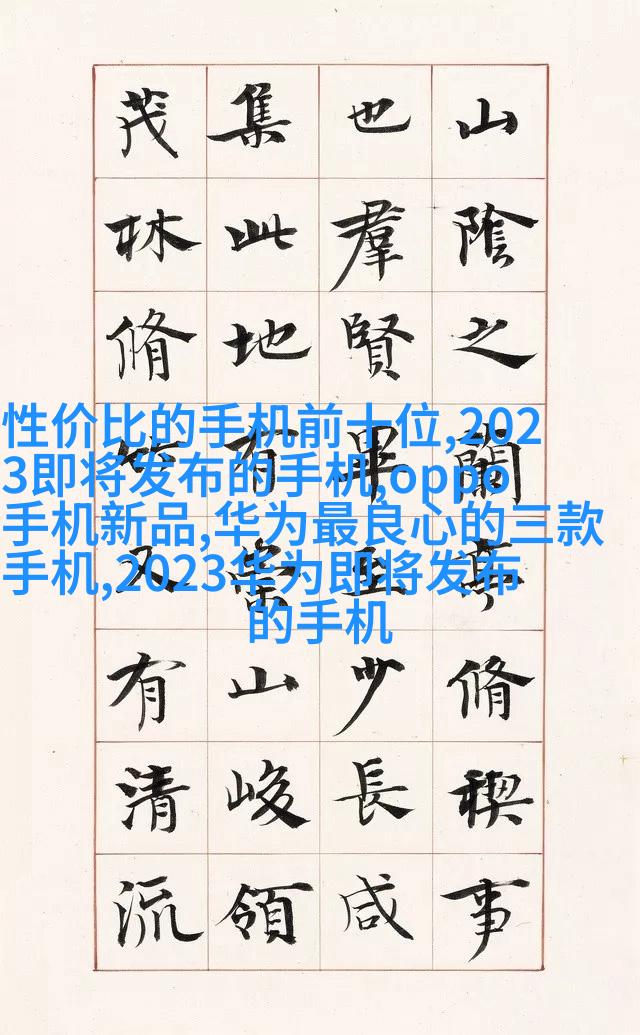 山陰之蘭亭脩稧事
也羣賢畢至少長咸
集此地有崇山峻領
茂林脩竹又有清流
性价比的手机前十位,202
3即将发布的手机,oppo
手机新品,华为最良心的三款
手机,2023华为即将发布
的手机